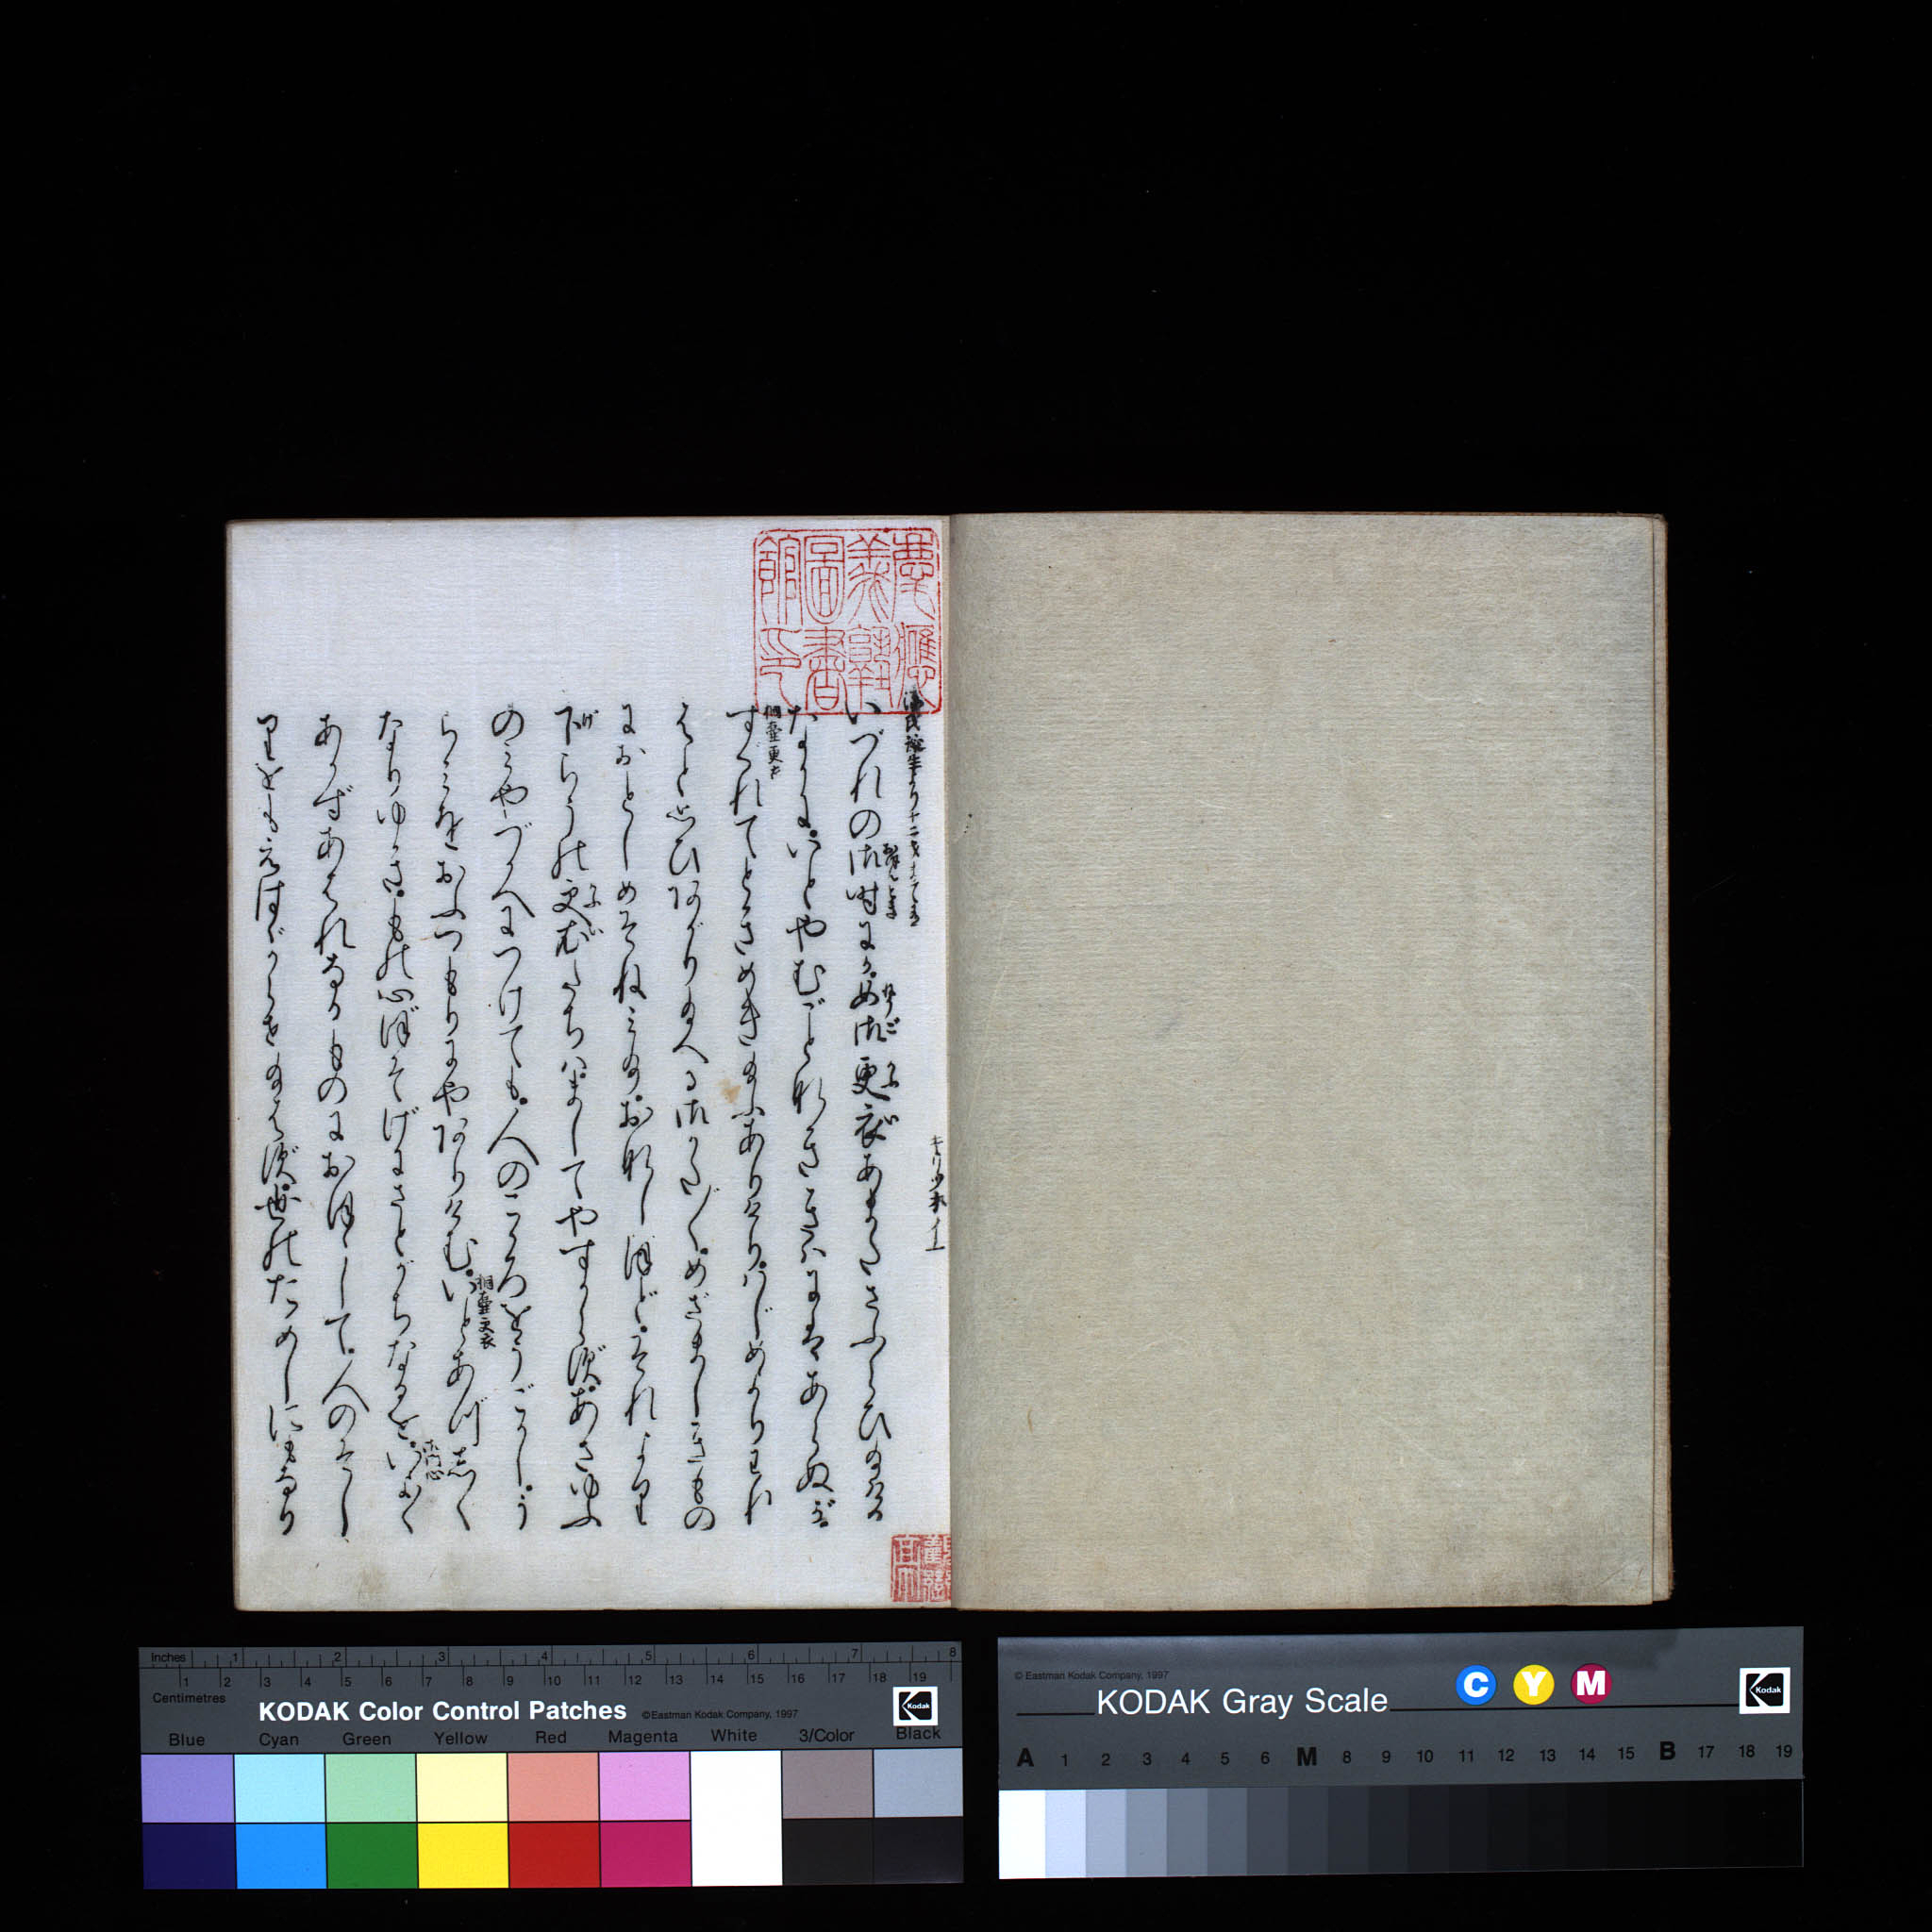 慶應
義塾
圖書
館印
源氏誕生より十二才まて有
いづれの御時にか。女御更衣あまたさふらひ給ける
なかに。いとやむごとなききはにはあらぬが。
桐壺更衣
すぐれてときめき給ふありけり。はじめよりわれ
はと思ひあがり給へる御かた〴〵。めざましきもの
におとしめそねみ給。おなじほど。それより
下らうの更衣たちは。ましてやすからず。あさゆふ
のみやづかへにつけても。人のこゝろをうごかし。う
らみをおふつもりにやありけむ。いとあづしく
桐壺更衣
なりゆき。もの心ぼそげにさとがちなるを。いよ〳〵
あかずあはれなるものにおぼして。人のそし
りをもえはゞからせ給はず。世のためしにもなり
Inches 1 2 3 4 5 6 7 8
Centimetres 1 2 3 4 5 6 7 8 9 10 11 12 13 14 15 16 17 18 19
KODAK Color Control Patches ©Eastman Kodak Company, 1997 Kodak
Blue Cyan Green Yellow Red Magenta White 3/Color Black
© Eastman Kodak Company, 1997
KODAK Gray Scale C Y M Kodak
A 1 2 3 4 5 6 M 8 9 10 11 12 13 14 15 B 17 18 19